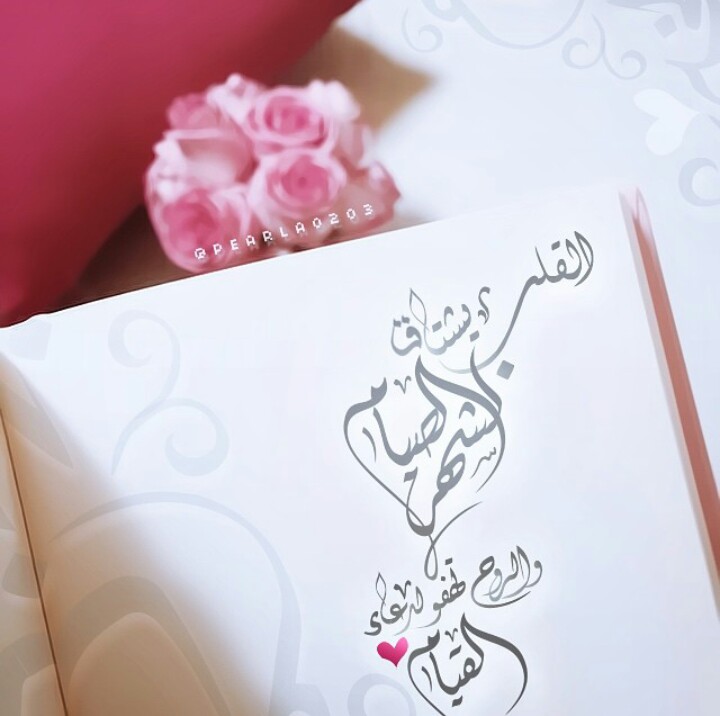 @PEARLA0203
القلب
يشتاق
لشهر
الصيام
والروح تهفو لدعاء
القيام